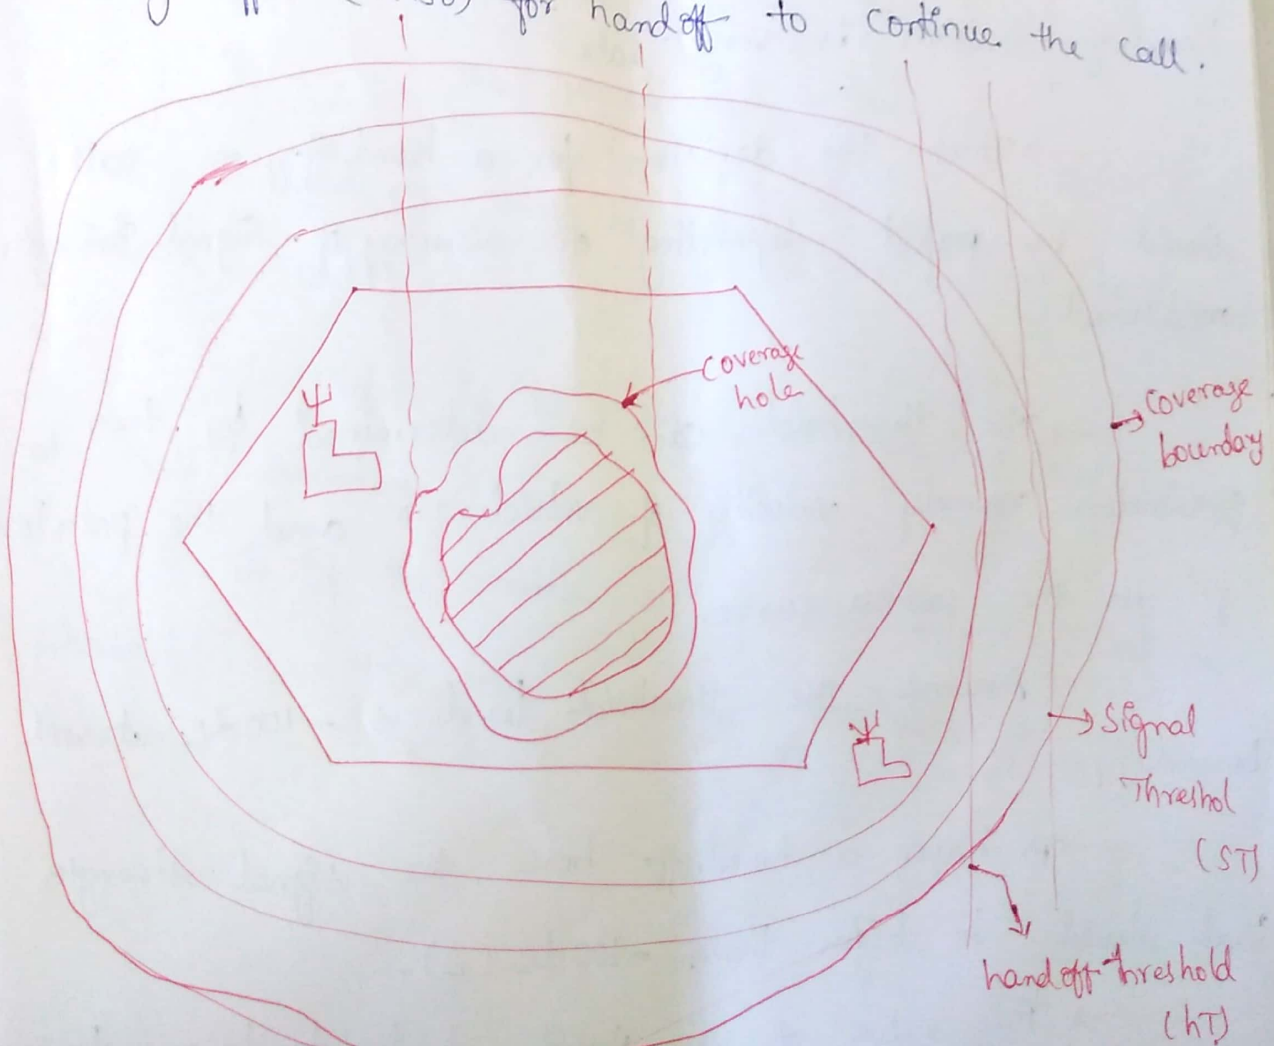 for handoff to continue the call.
coverage
hole
coverage
bourday
signal
Threshol
(ST)
handoff threshold
(hT)